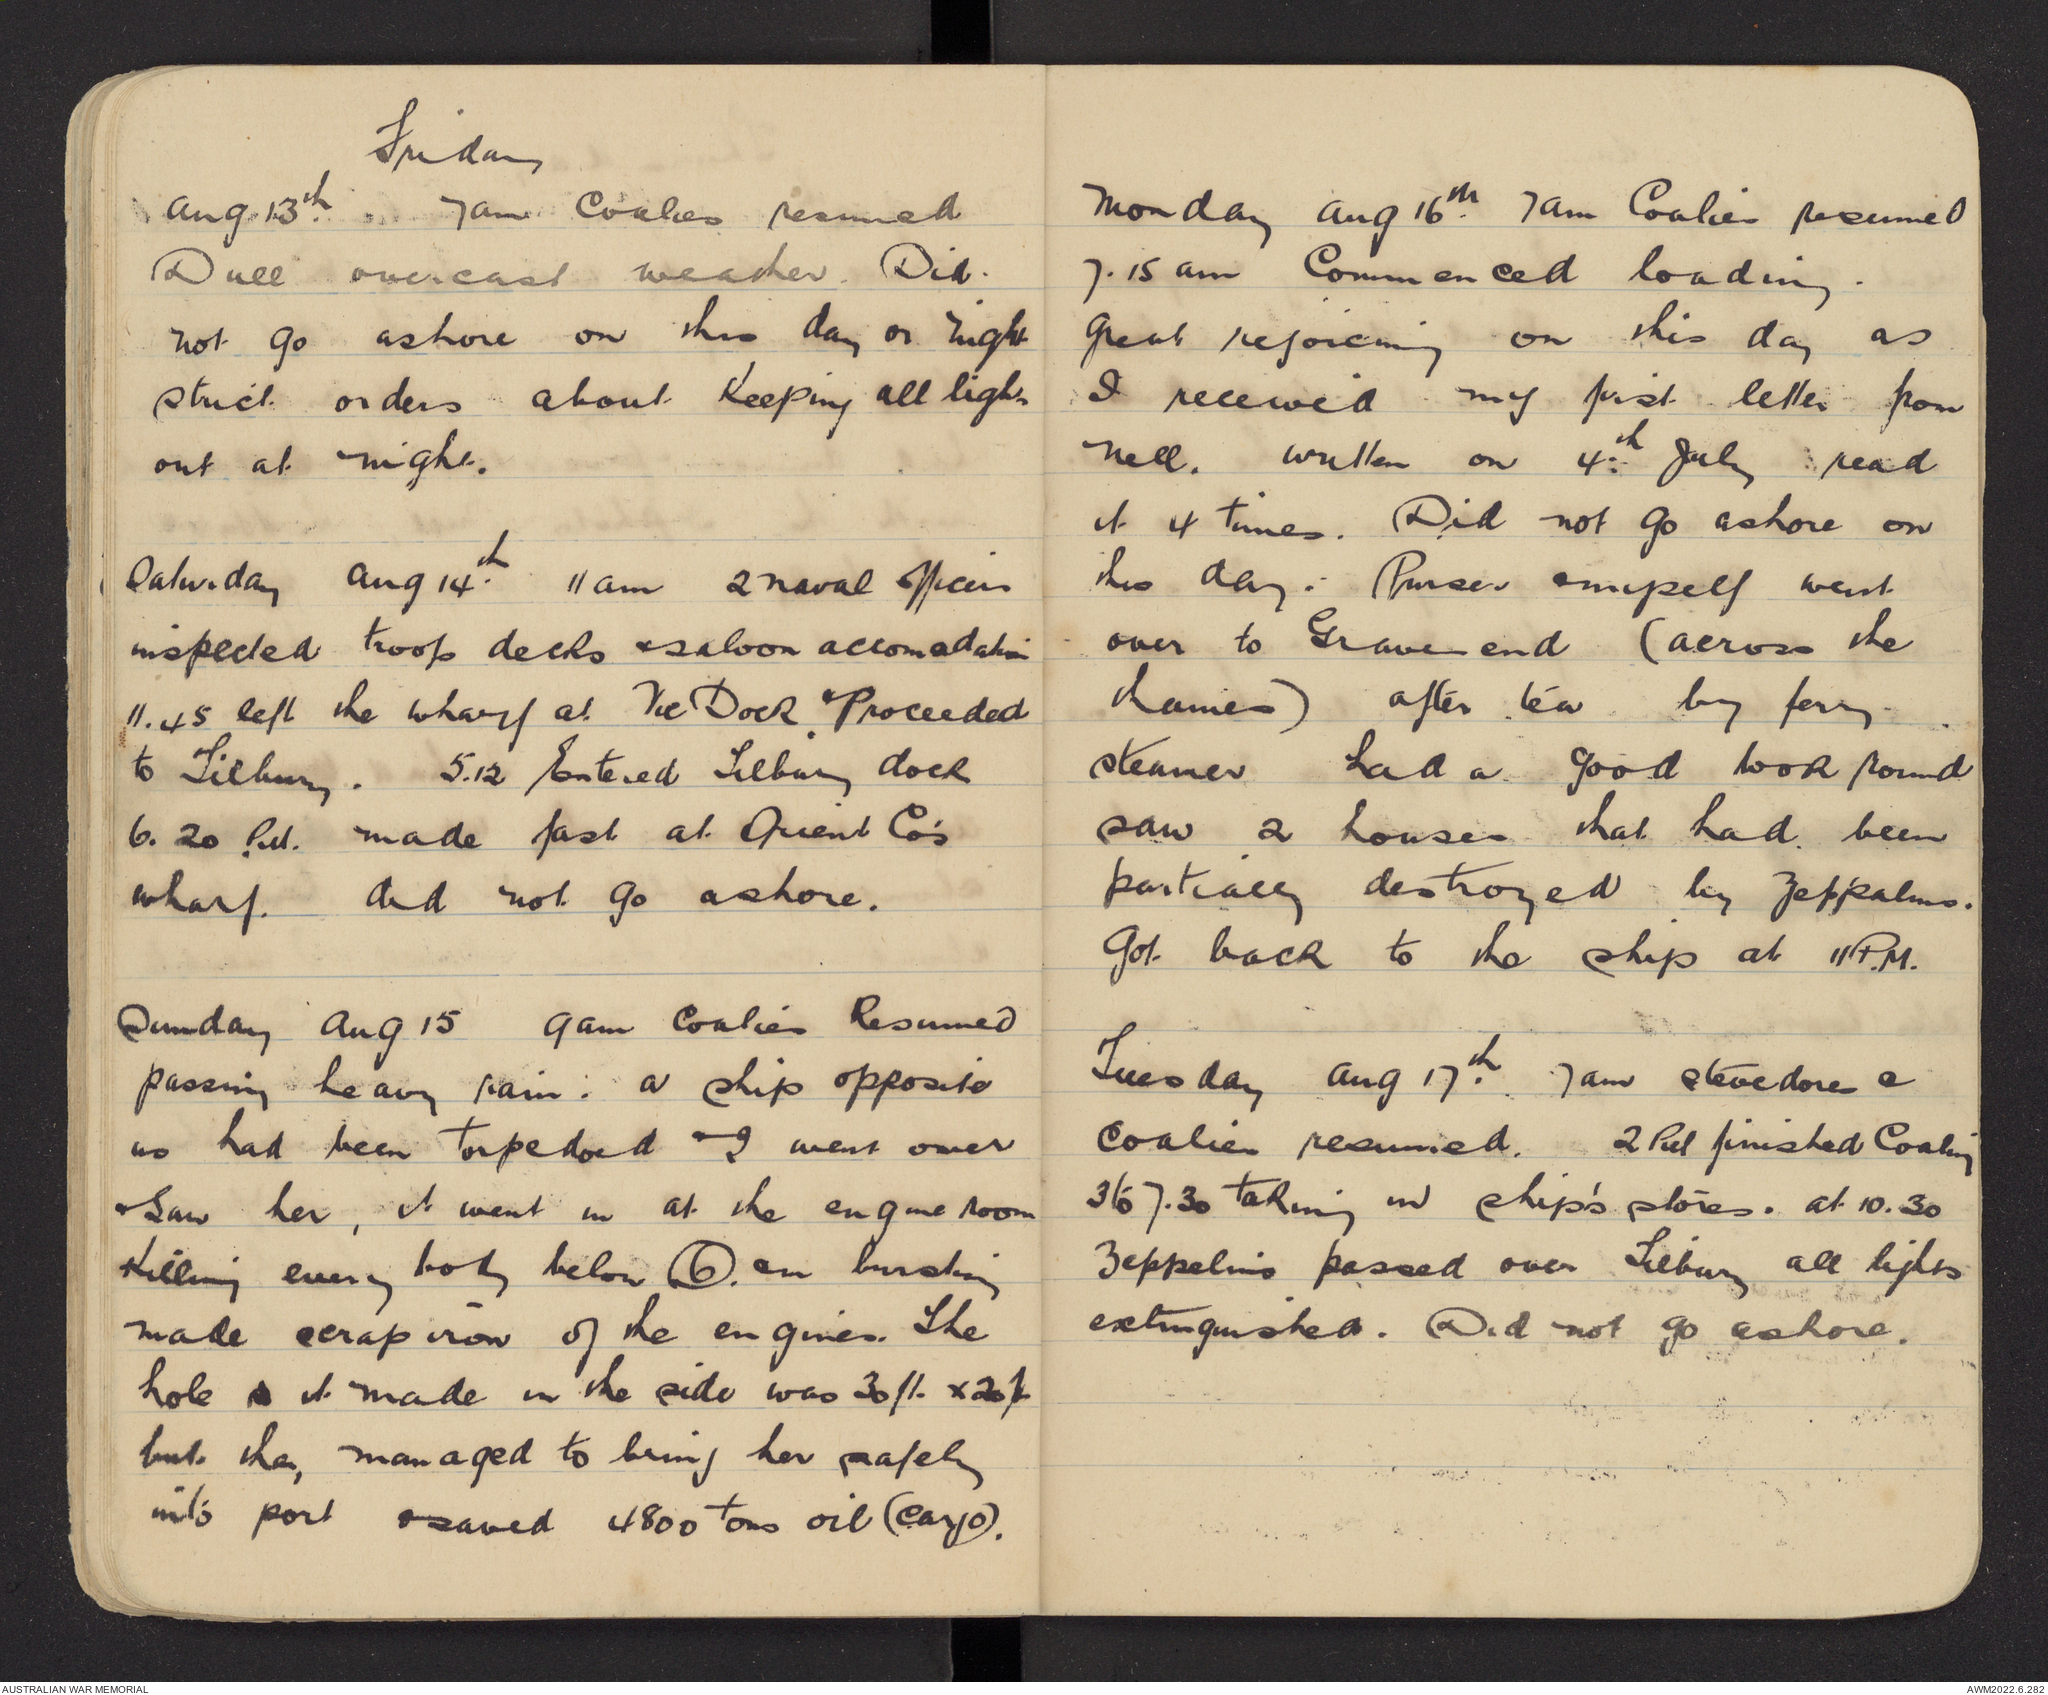 Friday
Aug 13th. 7am Coalies resumed
Dull overcast weather. Did.
not go ashore on this day or night
strict orders about keeping all lights
out at night.
Saturday Aug 14th. 11am 2 naval officers
inspected troop decks & saloon accomodation
11.45 left the wharf at Vic Dock. & Proceeded
to Tilbury. 5.12 Entered Tilbury dock
6.20 P.M. made fast at Orient Co's
wharf. did not go ashore.
Sunday Aug 15 9am Coalies Resumed
passing heavy rain. a ship opposite
us had been torpedoed & I went over
& Saw her, it went in at the engine room
killing every body below (6). in bursting
made scrap iron of the engines. The
hole it made in the side was 30ft. x 20ft
but they managed to bring her safely
into port & saved 4800 tons oil (cargo).
Monday Aug 16th. 7am Coalies resumed
7.15 am Commenced loading.
Great rejoicing on this day as
I received my first letter from
Nell. written on 4th. July read
it 4 times. Did not go ashore on
this day. Purser & myself went
over to Gravesend (across the
thames) after tea by ferry
steamer had a good look round
saw 2 houses that had been
partially destroyed by Zeppalins.
Got back to the ship at 11 P.M.
Tuesday Aug 17th. 7am stevedores &
coalies resumed. 2 PM finished Coaling
3 to 7.30 taking in ship's stores. at 10.30
Zeppelins passed over Tilbury all lights
extinguished. Did not go ashore.
AUSTRALIAN WAR MEMORIAL
AWM2022.6.282